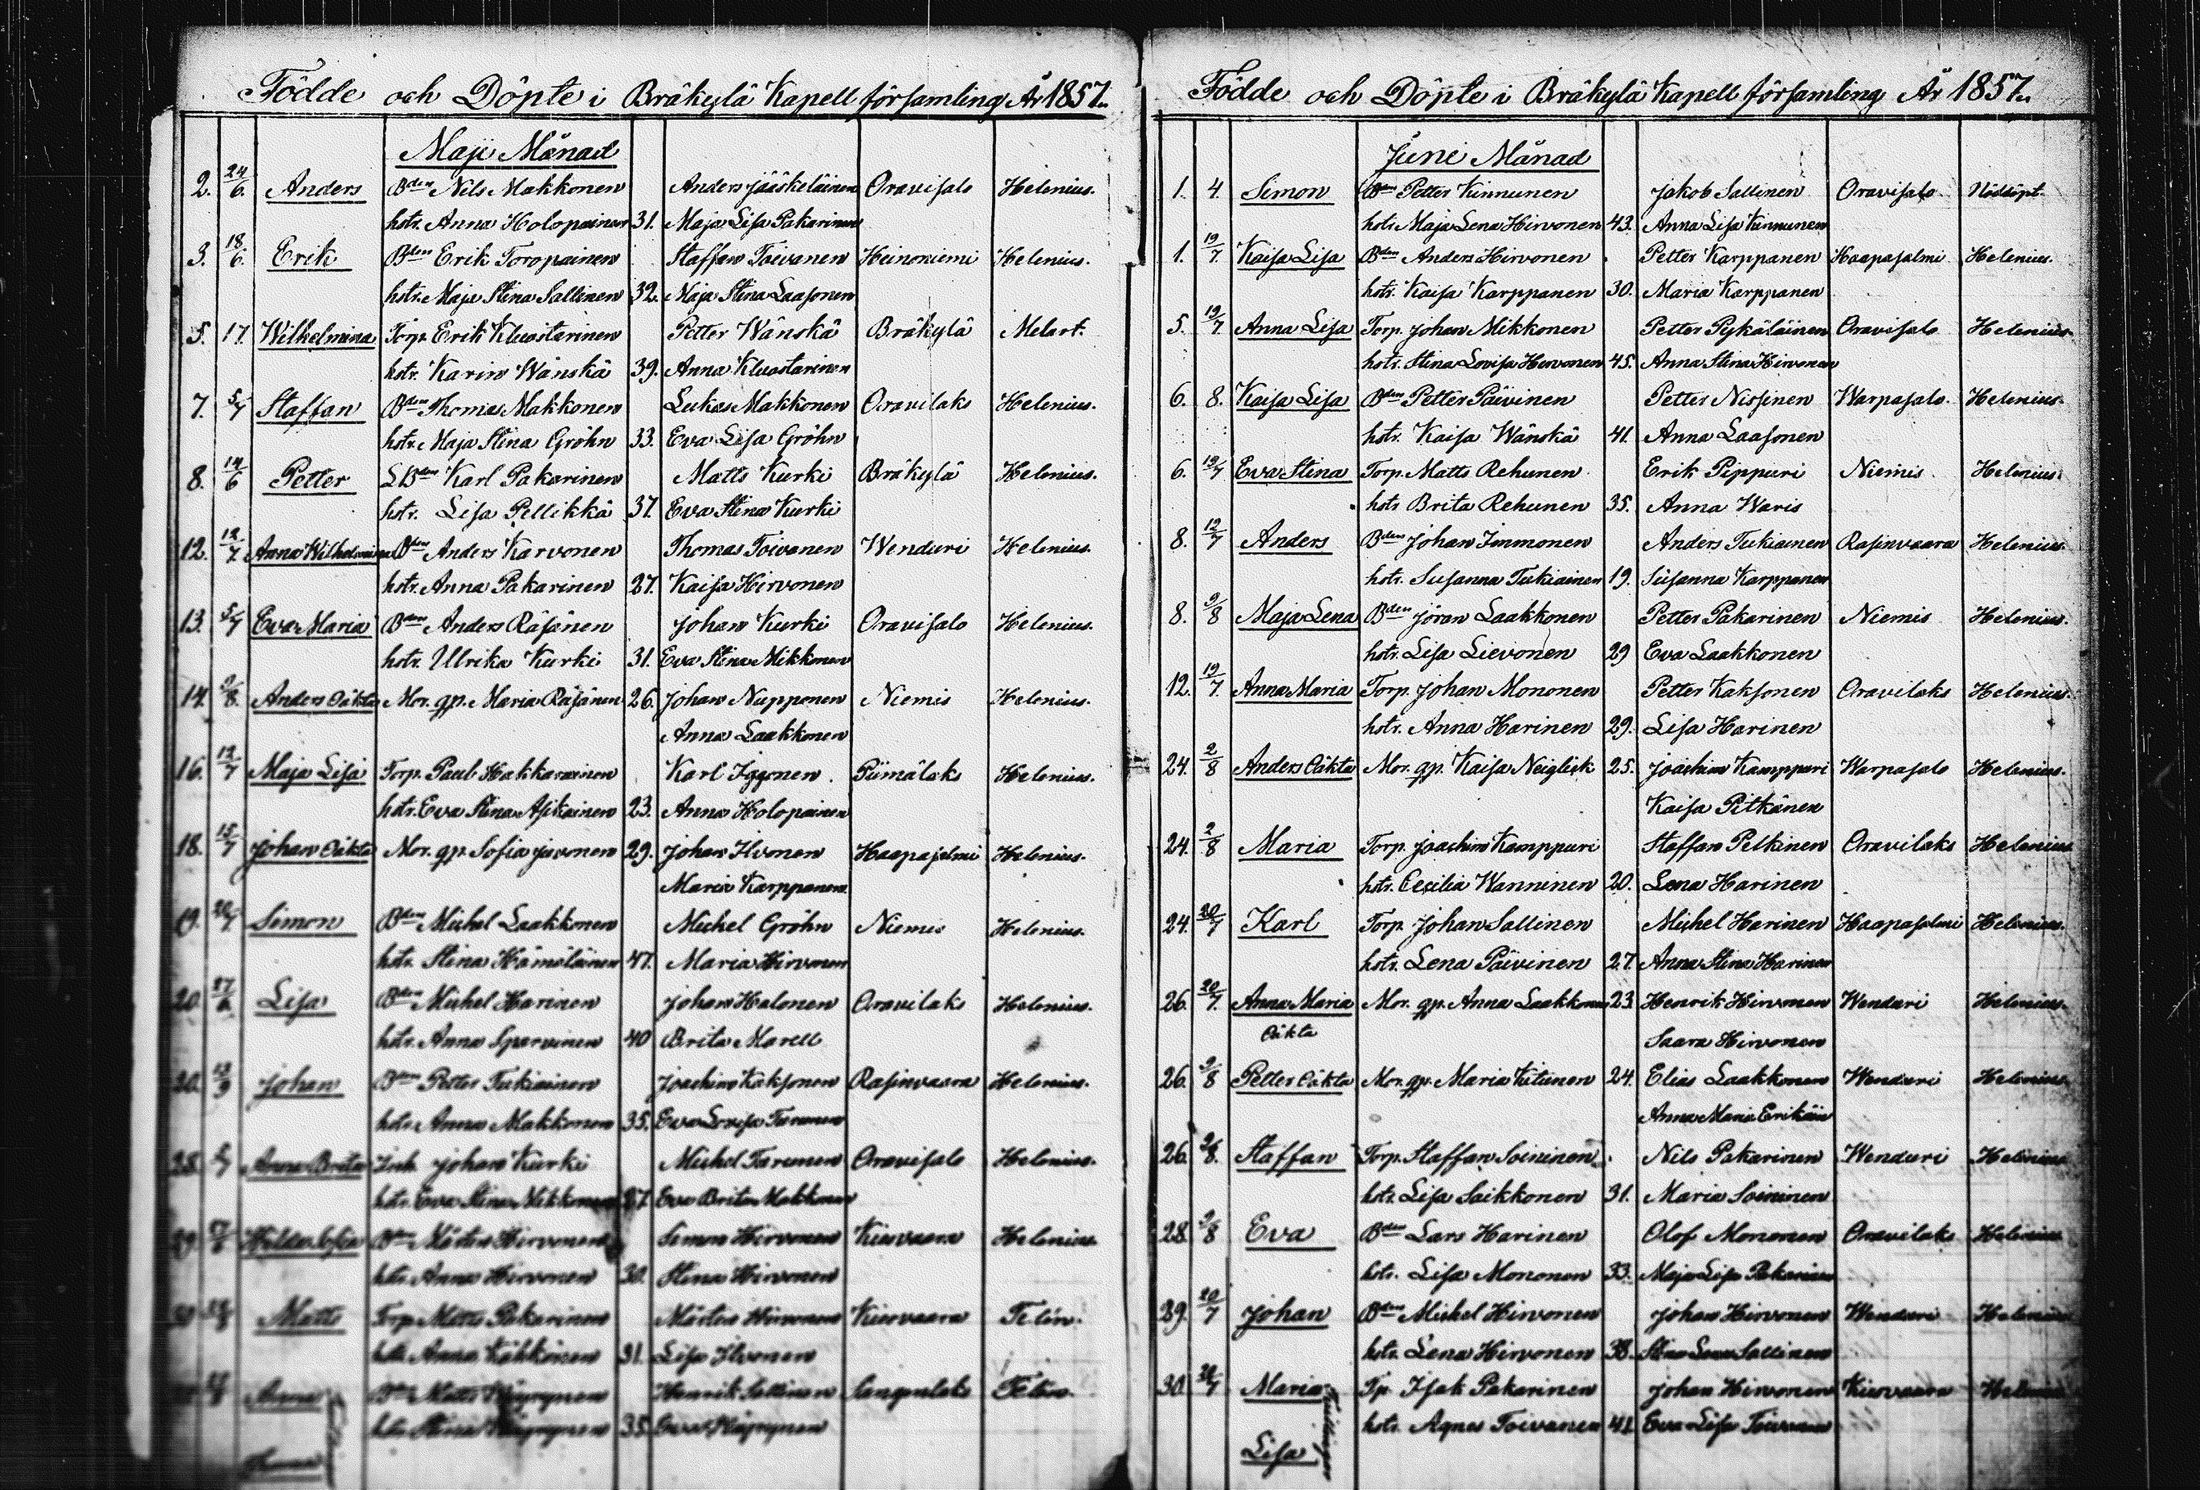 Födde och Döpte i Bräkylä Kapell församling År 1857.
Maji Månad
2. 24/6. Anders Bden Nils Makkonen Anders Jääskeläinen Oravisalo Helenius.
hstr. Anna Holopainen 31. Maja Lisa Pakarinen
3. 18/6. Erik Bden Erik Toropainen Staffan Toivanen Heinoniemi Helenius.
hstr. Maja Stina Sallinen 32. Maja Stina Laasonen
5. 17. Wilhelmina Torp. Erik Kluostarinen Petter Wänskä Bräkylä Melart.
hstr. Karin Wänskä 39. Anna Kluostarinen
7. 5/7 Staffan Bden Thomas Makkonen Lukas Makkonen Oravilaks Helenius.
hstr. Maja Stina Gröhn 33. Eva Lisa Gröhn
8. 14/6 Petter L.Bden Karl Pakarinen Matts Kurki Bräkylä Helenius.
hstr. Lisa Pellikkä 37. Eva Stina Kurki
12. 12/7 Anna Wilhelmina Bden Anders Karvonen Thomas Toivanen Wenduri Helenius.
hstr. Anna Pakarinen 27. Kaisa Hirvonen
13. 5/7 Eva Maria Bden Anders Räsänen Johan Kurki Oravisalo Helenius.
hstr. Ulrika Kurki 31. Eva Stina Mikkonen
14. 2/8. Anders Oäkta Mor. qp. Maria Räsänen 26. Johan Nupponen Niemis Helenius.
Anna Laakkonen
16. 12/7 Maja Lisa Torp. Paul Hakkarainen Karl Iggonen Piimälaks Helenius.
hstr. Eva Stina Asikainen 23. Anna Holopainen
18. 15/7 Johan Oäkta Mor. qp. Sofia Javonen 29. Johan Ilvonen Haapasalmi Helenius.
Maria Karppanen
19. 20/7 Simon Bden Michel Laakkonen Michel Gröhn Niemis Helenius.
hstr. Stina Hämäläinen 47. Maria Hirvonen
20. 27/6 Lisa Bden Michel Harinen Johan Halonen Oravilaks Helenius.
hstr. Anna Sparvinen 40 Brita Marell
20. 13/9 Johan Bden Petter Tukiainen Joachim Kaksonen Rasinvaara Helenius.
hstr. Anna Makkonen 35. Eva Lovisa Turunen
28. Anna Brita Inh. Johan Kurki Michel Turunen Oravisalo Helenius.
hstr. Eva Stina Mikkonen 27. Eva Brita Makkonen
29. Hilda Sofia Bden Mårten Hirvonen Simon Hirvonen Kiesvaara Helenius.
hstr. Anna Hirvonen 30. Stina Hirvonen
Matts Torp. Matts Pakarinen Mårten Hirvonen Kiesvaara Felin.
hstr. Anna Kähkönen 31. Lisa Ilvonen
Anna Bden Matts Henrik Sallinen Sangenlaks Felin.
hstr. Stina 35. Eva
Födde och Döpte i Bräkylä Kapell församling År 1857.
Juni Månad
1. 4 Simon Bden Petter Kinnunen Jakob Sallinen Oravisalo. Nöddöpt.
hstr. Maja Lena Hirvonen 43. Anna Lisa Kinnunen
1. 19/7 Kaisa Lisa Bden Anders Hirvonen Petter Karppanen Haapasalmi Helenius.
hstr. Kaisa Karppanen 30. Maria Karppanen
5. 12/7 Anna Lisa Torp. Johan Mikkonen Petter Pykäläinen Oravisalo Helenius.
hstr. Stina Lovisa Hirvonen 45. Anna Stina Hirvonen
6. 8. Kaisa Lisa Bden Petter Päivinen Petter Nissinen Warpasalo. Helenius.
hstr. Kaisa Wänskä 41. Anna Laasonen
6. 12/7 Eva Stina Torp. Matts Rehunen Erik Pippuri Niemis Helenius.
hstr. Brita Rehunen 35. Anna Waris
8. 12/7 Anders Bden Johan Immonen Anders Tukiainen Rasinvaara Helenius.
hstr. Susanna Tukiainen 19. Susanna Karppanen
8. 2/8 Maja Lena Bden Jöran Laakkonen Petter Pakarinen Niemis Helenius.
hstr. Lisa Lievonen 29 Eva Laakkonen
12. 19/7. Anna Maria Torp. Johan Mononen Petter Kaksonen Oravilaks Helenius.
hstr. Anna Harinen 29. Lisa Harinen
24. 2/8 Anders Oäkta Mor. qp. Kaisa Neiglick 25. Joachim Kamppuri Warpasalo Helenius.
Kaisa Pitkänen
24. 2/8 Maria Torp. Joachim Kamppuri Staffan Pelkinen Oravilaks Helenius.
hstr. Cecilia Wanninen 20. Lena Harinen
24. 20/7 Karl Torp. Johan Sallinen Michel Harinen Haapasalmi Helenius.
hstr. Lena Päivinen 27. Anna Stina Harinen
26. 20/7. Anna Maria Mor. qp. Anna Laakkonen 23. Henrik Hirvonen Wenduri Helenius.
Oäkta Saara Hirvonen
26. 2/8 Petter Oäkta Mor. qp. Maria Kitunen 24. Elias Laakkonen Wenduri Helenius.
Anna Maria Erikäin
26. 2/8. Staffan Torp. Staffan Soininen Nils Pakarinen Wenduri Helenius
hstr. Lisa Saikkonen 31. Maria Soininen
28. 2/8 Eva Bden Lars Harinen Olof Mononen Oravilaks Helenius
hstr. Lisa Mononen 33. Maja Lisa Pakarinen
29. 20/7 Johan Bden Michel Hirvonen Johan Hirvonen Wenduri Helenius
hstr. Lena Hirvonen 38. Stina Lena Sallinen
30. Maria Tp. Isak Pakarinen Johan Hirvonen Kiesvaara Helenius
hstr. Agnes Toivanen 41. Eva Lisa Toivanen
Lisa Tvillingar